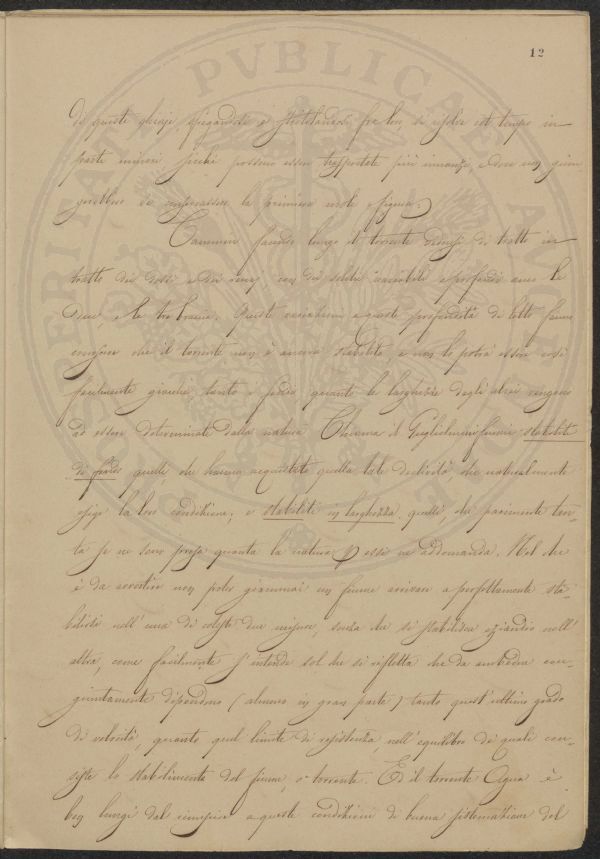 12
di queste ghiaje, spezzandosi e stritolandosi fra loro si riesce col tempo in
parte minori sicchè possono esser trasportate più innanzi, dove non giun-
gerebbero se conservassero la primiera mole e figura.
Cammin facendo lungo il torrente di tratto in
tratto dei dossi e dei seni, con dei variabili e profondi anco le
due, e le tre braccia. Queste variazioni e queste profondità di letto fanno
conoscer che il torrente non è ancora stabilito, e non lo potrà essere così
facilmente giacchè tanto il fondo, quanto le larghezze degli alvei vengono
ad essere determinate dalla natura. Chiama il Guglielmini fiumi stabiliti
di fondo quelli, che hanno acquistato quella tale declività, che naturalmente
esige la loro condizione; e stabiliti in larghezza quelli, che parimente tan-
ta se ne sono presa quanta la natura di essi ne addomanda. Nel che
è da avvertire non poter giammai un fiume arrivare a perfettamente sta-
bilirsi nell'una di coteste due misure, senza che si stabilisca eziandio nell'
altra, come facilmente s'intende sol che si rifletta che da ambedue con-
giuntamente dipendono (almeno in gran parte) tanto quest'ultimo grado
di velocità, quanto quel limite di resistenza, nell'equilibrio de' quali con-
siste lo stabilimento del fiume, o torrente. Ed il torrente Agna è
ben lungi dal a queste condizioni di buona sistemazione del